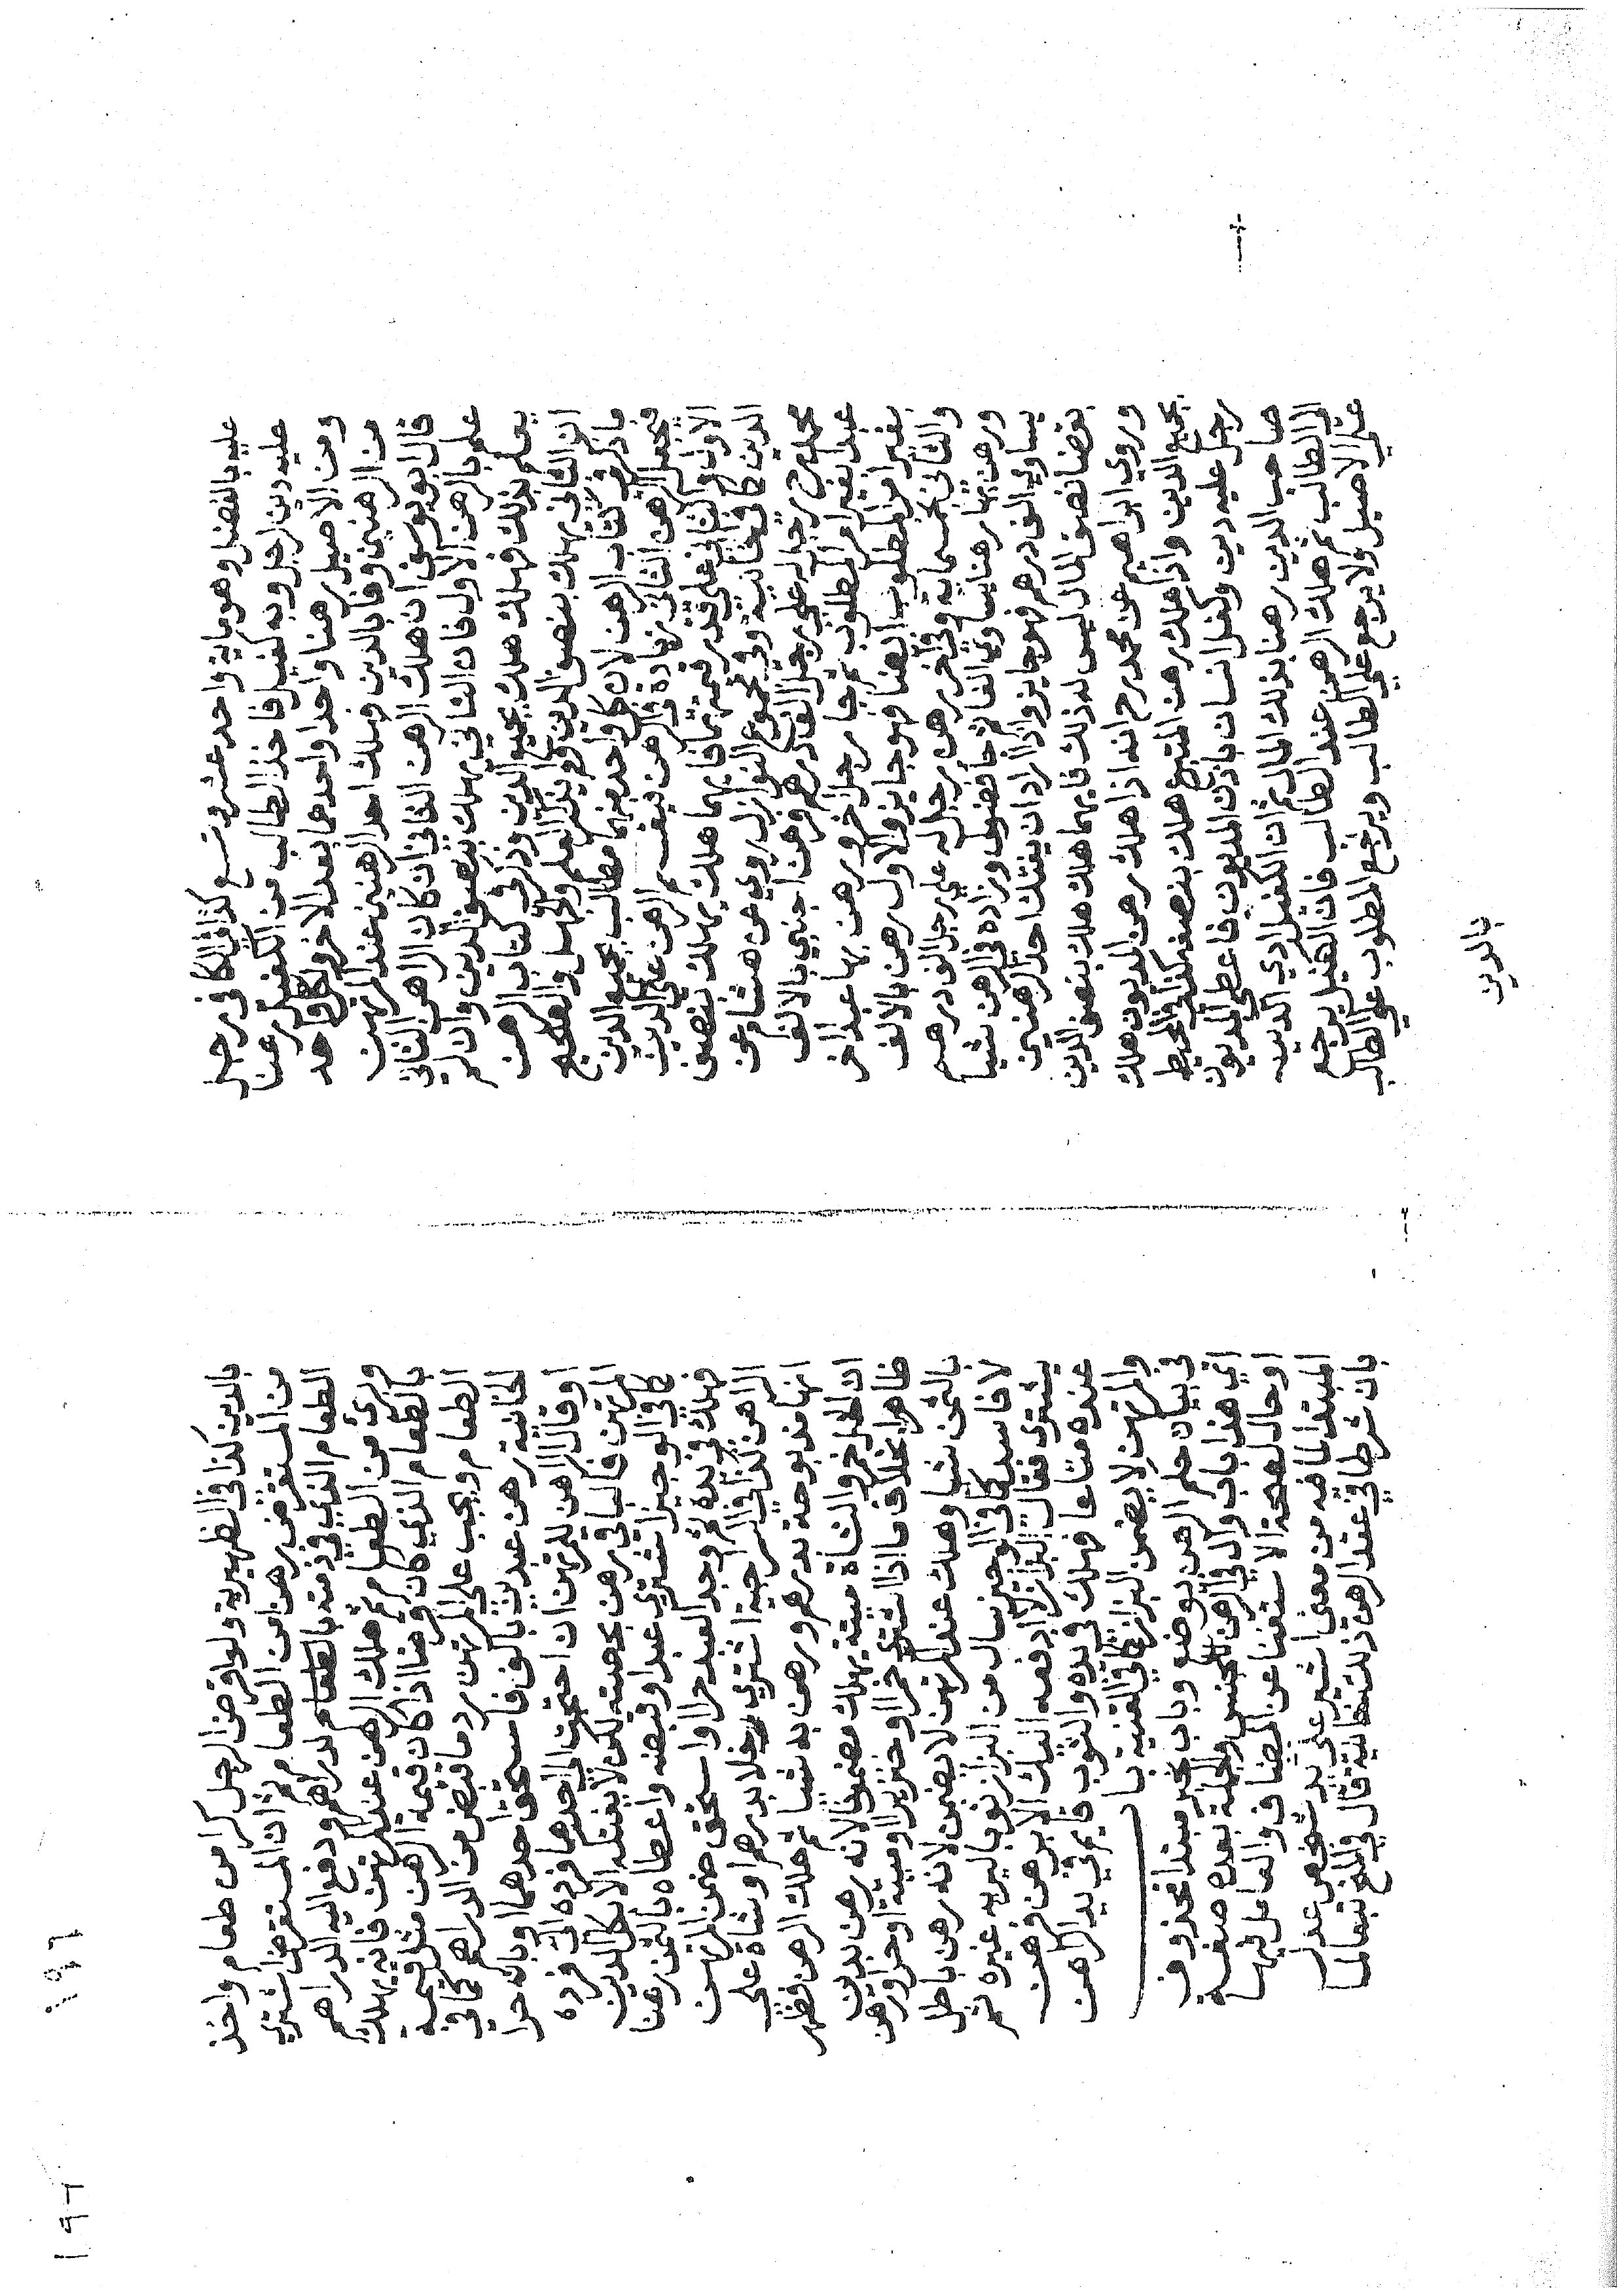 عليه بالفضل وهو ماية واحد عشر وتسع كذا في الكافي رجل
عليه دين لرجل وبه كفيل فاخذ الطالب من الكفيل رهنا
ومن الاصيل رهنا واحدا واحدهما بعد الاخر ولكل واحد
من الرهنين وفا بالدين فهلك احد الرهنين عند المرتهن
قال ابو يوسف ان هلك الرهن الثاني ان كان الراهن الثاني
علم بالرهن الاول فان الثاني يهلك بنصف الدين وان لم
يعلم بذلك فهلك هلك بجميع الدين وذكر في كتاب الرهن
ان الثاني يهلك بنصف الدين ولم يذكر العلم والجهل والصحيح
ما ذكر في كتاب الرهن لان كل واحد منهما مطالب بجميع الدين
فيجعل الرهن الثاني زيادة في الرهن فيقسم الرهن على الدين
الاول والثاني على قدر قيمتهما فايهما هلك يهلك بنصف
الدين كما في الخانية وفي مجموع النوازل روي عن هشام عن
محمد في رجل له على رجل الف درهم فرهن اجنبي بالالف
عبدا بغير امر المطلوب ثم جا رجل اخر ورهن بها عبدا اخر
بغير امر المطلوب ايضا فهو جايز والاول رهن بالالف
والثاني بخمسماية وفي اخر رهن رجل له على رجل الف درهم
ورهن بها رهنا يساوي الفا ثم جا فضولي وزاده في الرهن شيا
يساوي الف درهم فهو جايز واذا اراد ان يفتك احد الرهنين
بقضا نصف المال ليس له ذلك فايهما هلك هلك بنصف الدين
وروي ابراهيم عن محمد رح انه اذا هلك رهن المديون هلك
بجميع الدين واذا هلك رهن المتبرع هلك بنصفه كذا في المحيط
رجل عليه دين وكفل انسان باذن المديون فاعطى المديون
صاحب الدين رهنا بذلك المال ثم ان الكفيل ادي الدين
الى الطالب ثم هلك الرهن عند الطالب فان الكفيل يرجع
على الاصيل ولا يرجع على الطالب ويرجع المطلوب على الطالب
بالدين
بالدين كذا في الظهيرية ولو اقرض الرجل كرا من طعام واخذ
من المستقرض رهنا من الطعام ثم ان المستقرض اشتري
الطعام الذي في ذمته بالطعام بدراهم ودفع اليه الدراهم
وبرئ من الطعام ثم هلك الرهن عند المرتهن فانه يهلك
بالطعام الذي كان قرضا اذا كان قيمة الرهن مثل قيمة
الطعام ويجب على المرتهن رد ما قبض من الدراهم كما في
الخانية رهن عبدين بالف فاستحق احدهما او بان حرا
او قال الراهن للمرتهن ان احتجت الى احدهما فرده الى فرده
المرتهن فالباقي رهن بحصته لكن لا يفتكه الا بكل الدين
كما في الوجيز اشتري عبدا وقبضه واعطاه بالثمن رهنا
فهلك في يده ثم وجد العبد حرا او استحق ضمن المرتهن
الراهن كذا في السراجية اشتري خلا بدرهم او شاة على
انها مذبوحة بدرهم ورهن به شيا ثم هلك الرهن فظهر
ان الخل خمر والشاة ميتة يهلك مضمونا لانه رهن بدين
ظاهرا بخلاف ما اذا اشتري خمرا او خنزيرا او ميتة او حرا ورهن
بالثمن شيا وهلك عند المرتهن لا يضمن لانه رهن باطل
لا فاسد كما في الوجيز سال من البزاز ثوبا ليريه غيره ثم
يشتري فقال البزاز لا ادفعه اليك الا برهن فرهن
عنده متاعا فهلك في يده والثوب قايم في يد الراهن
والمرتهن لا يضمن البزاز كما في القنية باب
في بيان حكم الرهن يوضع وباب خبر مبتدا محذوف
اي هذا باب وال في الرهن للجنس والجملة بعده صفة
او حال لصحة الاستغنا عن المضاف والعامل فيها
المبتدا لما فيه من معنى اشير على يد شخص عدل
بان شرطا في عقد الرهن ذلك قال في المنح تبعا لما
١٩٦
١٩٦